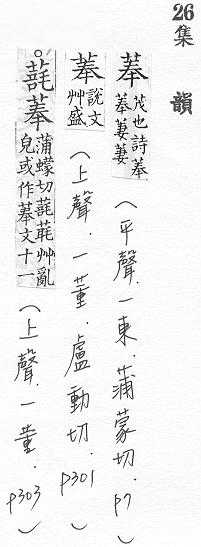 26 集韻
菶 茂也詩菶菶萋萋 (平聲.一東.蒲蒙切.p7)
菶 說文艸盛 (上聲.一董.盧動切.p301)
。菶 蒲蠓切艸亂皃或作菶文十一 (上聲.一董.p303)